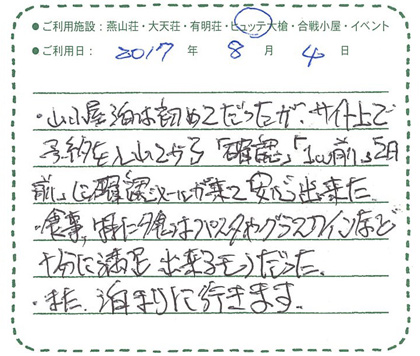 ●ご利用施設：燕山荘・大天荘・有明荘・ヒュッテ大槍・合戦小屋・イベント
●ご利用日：2017年8月4日
・山小屋泊は初めてだったが、サイト上で
予約を入れてから「確認」「1w前」「2日
前」に確認メールが来て安心出来た。
・食事、特に夕食はパスタやグラスワインなど
十分に満足出来るモノだった。
・また、泊まりに行きます。